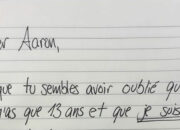 r Aaron,
que tu sembles avoir oublié qu
as que 13 ans et que je suis